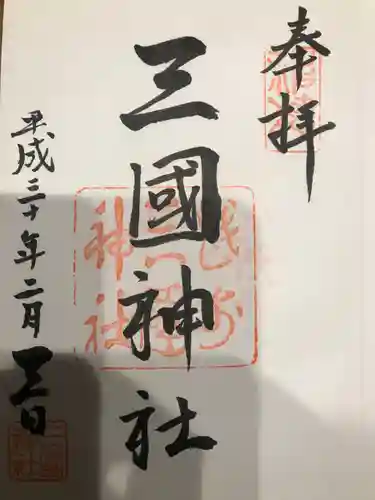 奉拝
三國神社
平成三十年二月三日